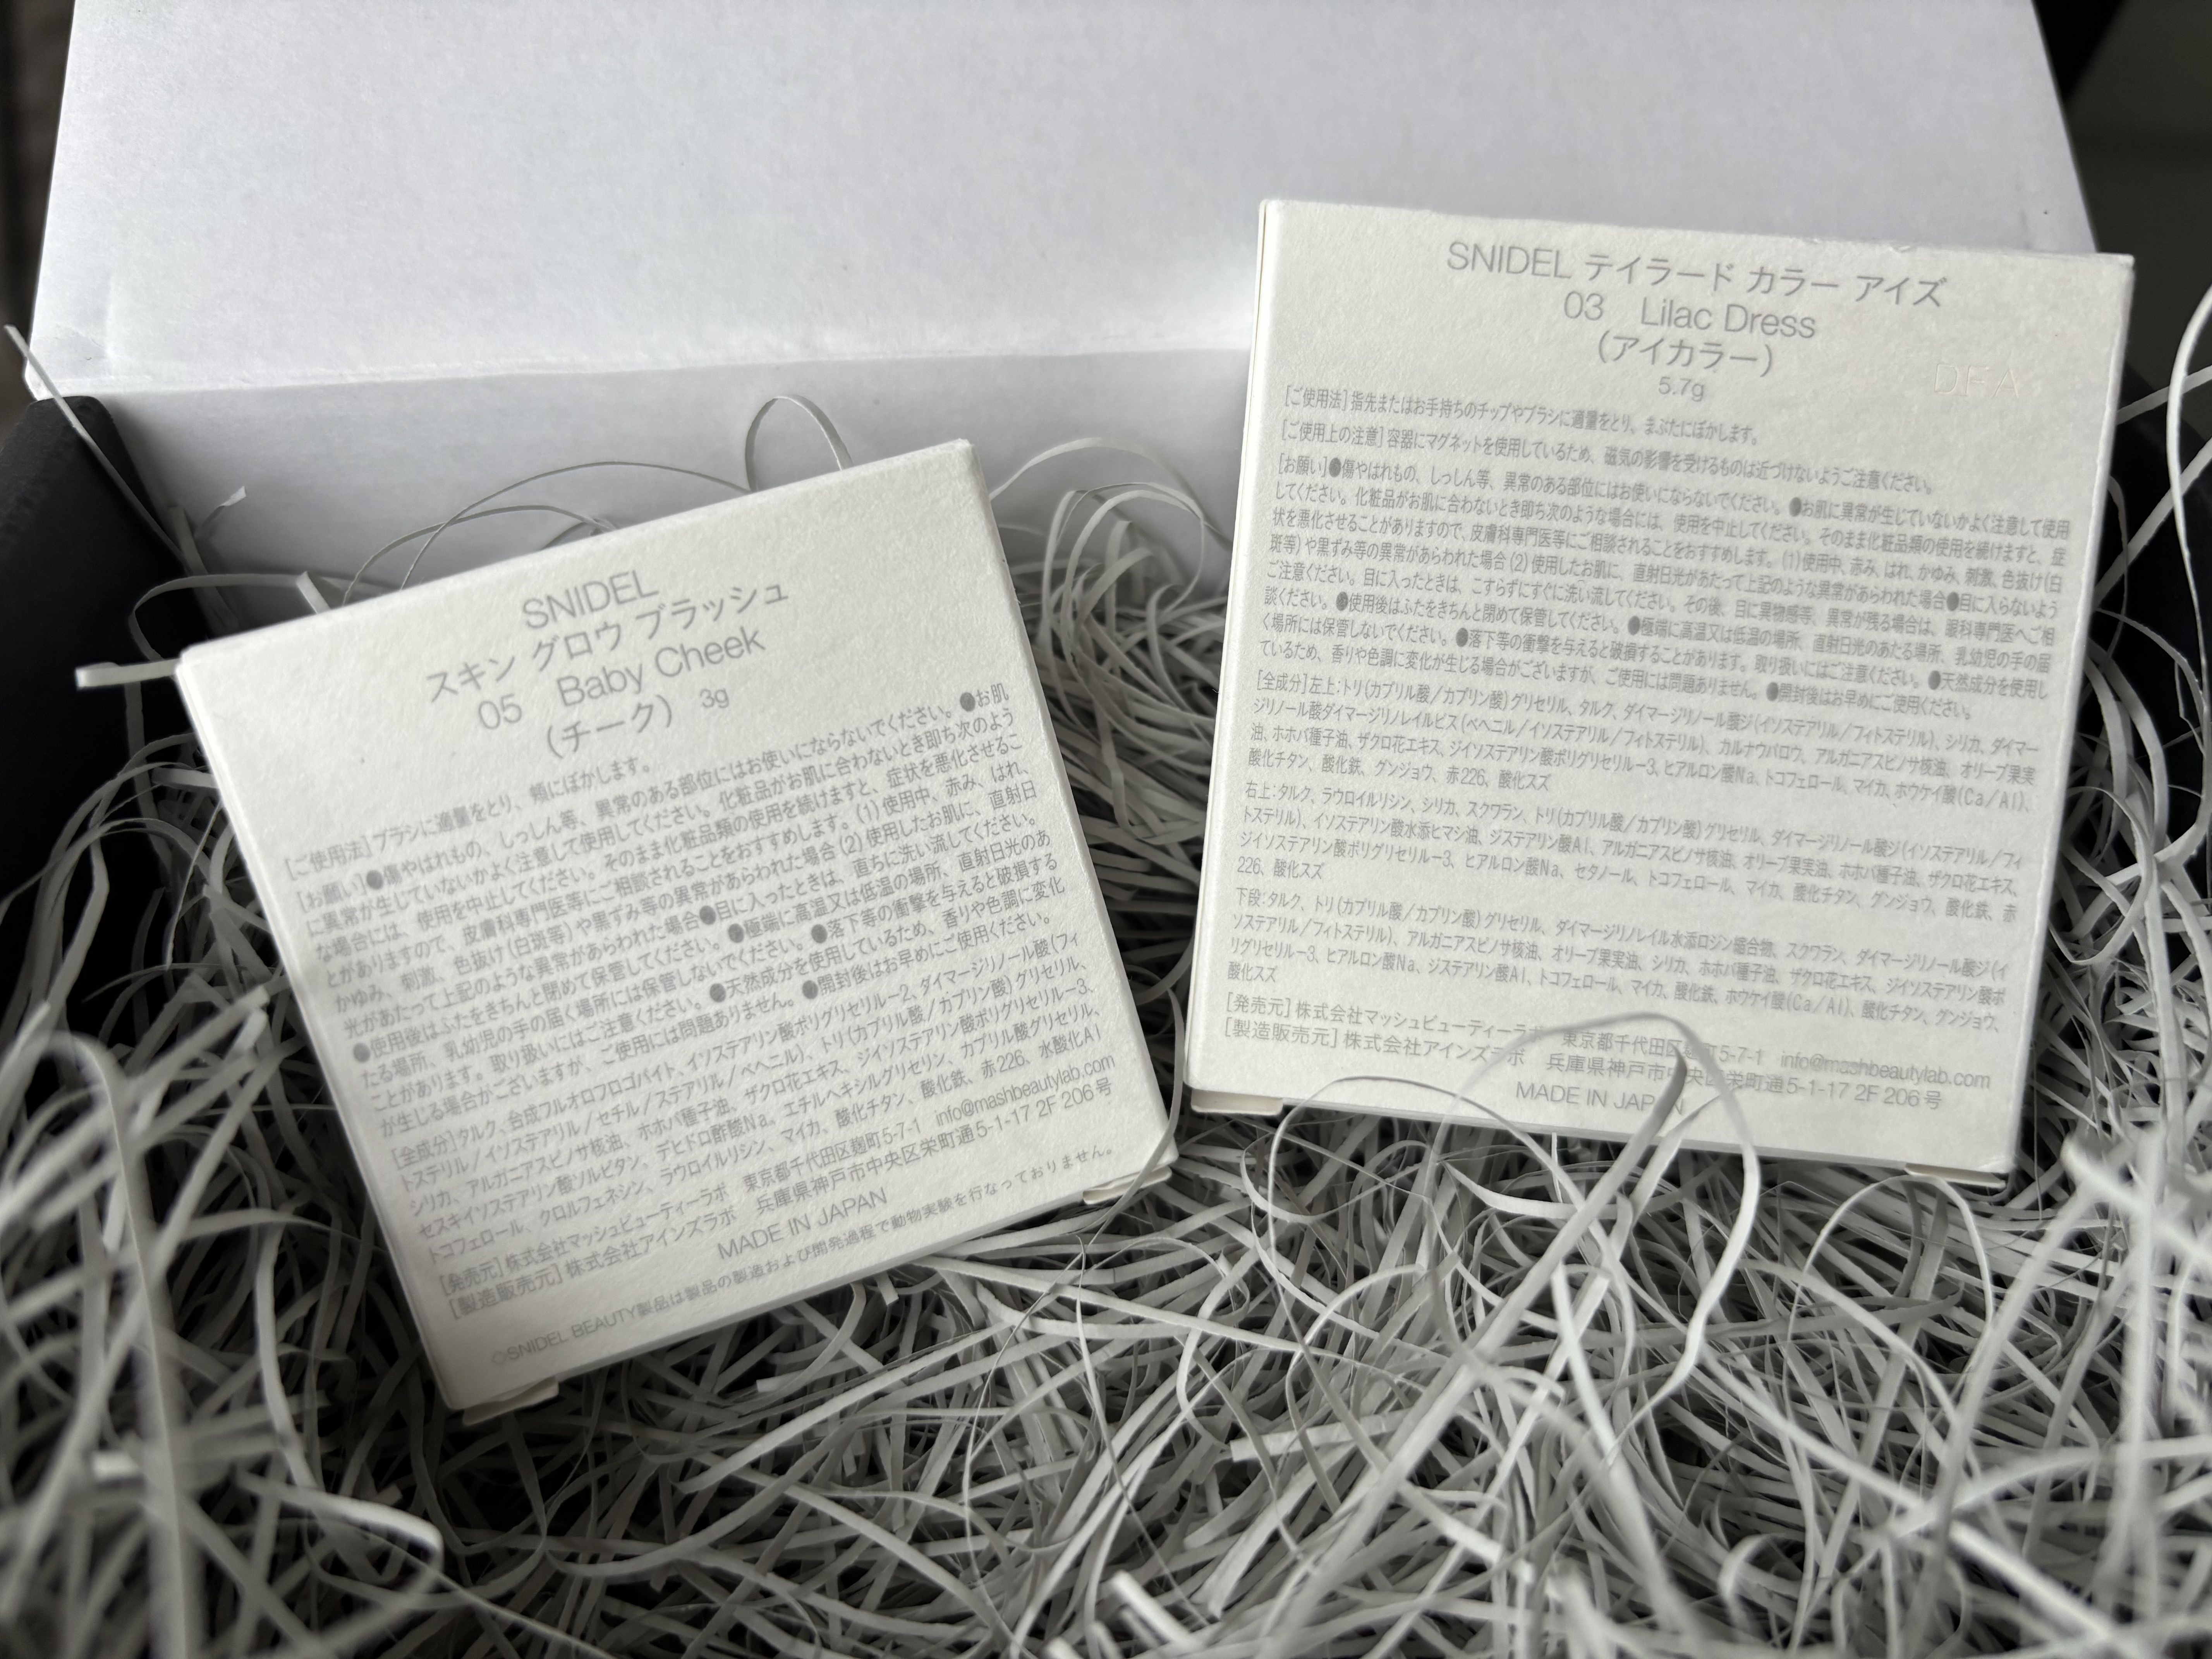 SNIDEL
スキン グロウ ブラッシュ
05 Baby Cheek
(チーク) 3g
[ご使用法]ブラシに適量をとり、頬にぼかします。
[お願い]●傷やはれもの、しっしん等、異常のある部位にはお使いにならないでください。●お肌
に異常が生じていないかよく注意して使用してください。化粧品がお肌に合わないとき即ち次のよう
な場合には、使用を中止してください。そのまま化粧品類の使用を続けますと、症状を悪化させるこ
とがありますので、皮膚科専門医等にご相談されることをおすすめします。(1)使用中、赤み、はれ、
かゆみ、刺激、色抜け(白斑等)や黒ずみ等の異常があらわれた場合(2)使用したお肌に、直射日
光があたって上記のような異常があらわれた場合●目に入ったときは、直ちに洗い流してください。
●使用後はふたをきちんと閉めて保管してください。●極端に高温又は低温の場所、直射日光のあ
たる場所、乳幼児の手の届く場所には保管しないでください。●落下等の衝撃を与えると破損する
ことがあります。取り扱いにはご注意ください。●天然成分を使用しているため、香りや色調に変化
が生じる場合がございますが、ご使用には問題ありません。●開封後はお早めにご使用ください。
[全成分]タルク、合成フルオロフロゴパイト、イソステアリン酸ポリグリセリル-2、ダイマージリノール酸(フィ
トステリル/イソステアリル/セチル/ステアリル/ベヘニル)、トリ(カプリル酸/カプリン酸)グリセリル、
シリカ、アルガニアスピノサ核油、ホホバ種子油、ザクロ花エキス、ジイソステアリン酸ポリグリセリル-3、
セスキイソステアリン酸ソルビタン、デヒドロ酢酸Na、エチルヘキシルグリセリン、カプリル酸グリセリル、
トコフェロール、クロルフェネシン、ラウロイルリシン、マイカ、酸化チタン、酸化鉄、赤226、水酸化Al
[発売元]株式会社マッシュビューティーラボ 東京都千代田区麹町5-7-1 info@mashbeautylab.com
[製造販売元]株式会社アインズラボ 兵庫県神戸市中央区栄町通5-1-17 2F 206号
MADE IN JAPAN
◇SNIDEL BEAUTY製品は製品の製造および開発過程で動物実験を行なっておりません。
SNIDEL テイラード カラー アイズ
03 Lilac Dress
(アイカラー)
5.7g
DFA
[ご使用法]指先またはお手持ちのチップやブラシに適量をとり、まぶたにぼかします。
[ご使用上の注意]容器にマグネットを使用しているため、磁気の影響を受けるものは近づけないようご注意ください。
[お願い]●傷やはれもの、しっしん等、異常のある部位にはお使いにならないでください。●お肌に異常が生じていないかよく注意して使用
してください。化粧品がお肌に合わないとき即ち次のような場合には、使用を中止してください。そのまま化粧品類の使用を続けますと、症
状を悪化させることがありますので、皮膚科専門医等にご相談されることをおすすめします。(1)使用中、赤み、はれ、かゆみ、刺激、色抜け(白
斑等)や黒ずみ等の異常があらわれた場合(2)使用したお肌に、直射日光があたって上記のような異常があらわれた場合●目に入らないよう
ご注意ください。目に入ったときは、こすらずにすぐに洗い流してください。その後、目に異物感等、異常が残る場合は、眼科専門医へご相
談ください。●使用後はふたをきちんと閉めて保管してください。●極端に高温又は低温の場所、直射日光のあたる場所、乳幼児の手の届
く場所には保管しないでください。●落下等の衝撃を与えると破損することがあります。取り扱いにはご注意ください。●天然成分を使用し
ているため、香りや色調に変化が生じる場合がございますが、ご使用には問題ありません。●開封後はお早めにご使用ください。
[全成分]左上:トリ(カプリル酸/カプリン酸)グリセリル、タルク、ダイマージリノール酸ジ(イソステアリル/フィトステリル)、シリカ、ダイマー
ジリノール酸ダイマージリノレイルビス(ベヘニル/イソステアリル/フィトステリル)、カルナウバロウ、アルガニアスピノサ核油、オリーブ果実
油、ホホバ種子油、ザクロ花エキス、ジイソステアリン酸ポリグリセリル-3、ヒアルロン酸Na、トコフェロール、マイカ、ホウケイ酸(Ca/Al)、
酸化チタン、酸化鉄、グンジョウ、赤226、酸化スズ
右上:タルク、ラウロイルリシン、シリカ、スクワラン、トリ(カプリル酸/カプリン酸)グリセリル、ダイマージリノール酸ジ(イソステアリル/フィ
トステリル)、イソステアリン酸水添ヒマシ油、ジステアリン酸Al、アルガニアスピノサ核油、オリーブ果実油、ホホバ種子油、ザクロ花エキス、
ジイソステアリン酸ポリグリセリル-3、ヒアルロン酸Na、セタノール、トコフェロール、マイカ、酸化チタン、グンジョウ、酸化鉄、赤
226、酸化スズ
下段:タルク、トリ(カプリル酸/カプリン酸)グリセリル、ダイマージリノレイル水添ロジン縮合物、スクワラン、ダイマージリノール酸ジ(イ
ソステアリル/フィトステリル)、アルガニアスピノサ核油、オリーブ果実油、シリカ、ホホバ種子油、ザクロ花エキス、ジイソステアリン酸ポ
リグリセリル-3、ヒアルロン酸Na、ジステアリン酸Al、トコフェロール、マイカ、酸化鉄、ホウケイ酸(Ca/Al)、酸化チタン、グンジョウ、
酸化スズ
[発売元]株式会社マッシュビューティーラボ 東京都千代田区麹町5-7-1 info@mashbeautylab.com
[製造販売元]株式会社アインズラボ 兵庫県神戸市中央区栄町通5-1-17 2F 206号
MADE IN JAPAN